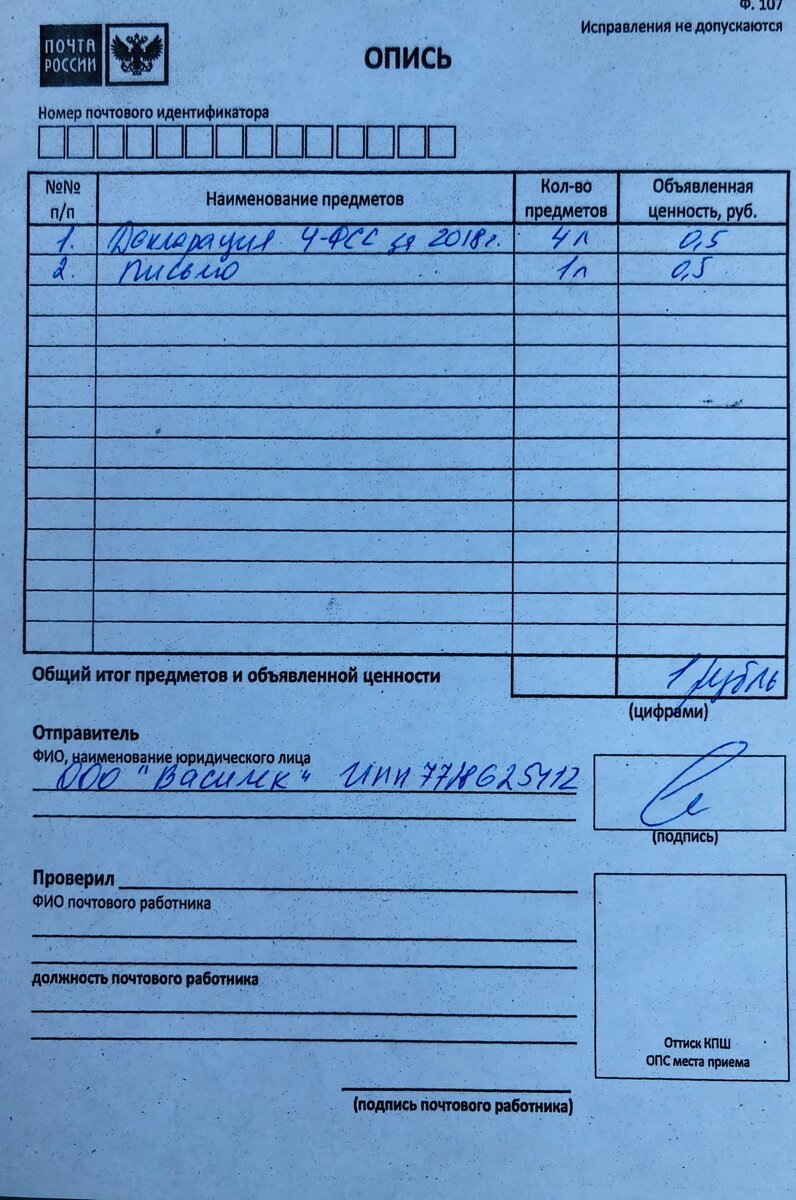 Ф. 107
Исправления не допускаются
ПОЧТА
РОССИИ
ОПИСЬ
Номер почтового идентификатора
№№ п/п Наименование предметов Кол-во предметов Объявленная ценность, руб.
1. Декларация 4-ФСС за 2018г. 4л 0,5
2. Письмо 1л 0,5
Общий итог предметов и объявленной ценности 1 рубль
(цифрами)
Отправитель
ФИО, наименование юридического лица
ООО "Василек" ИНН 7718625412
(подпись)
Проверил
ФИО почтового работника
должность почтового работника
Оттиск КПШ
ОПС места приема
(подпись почтового работника)